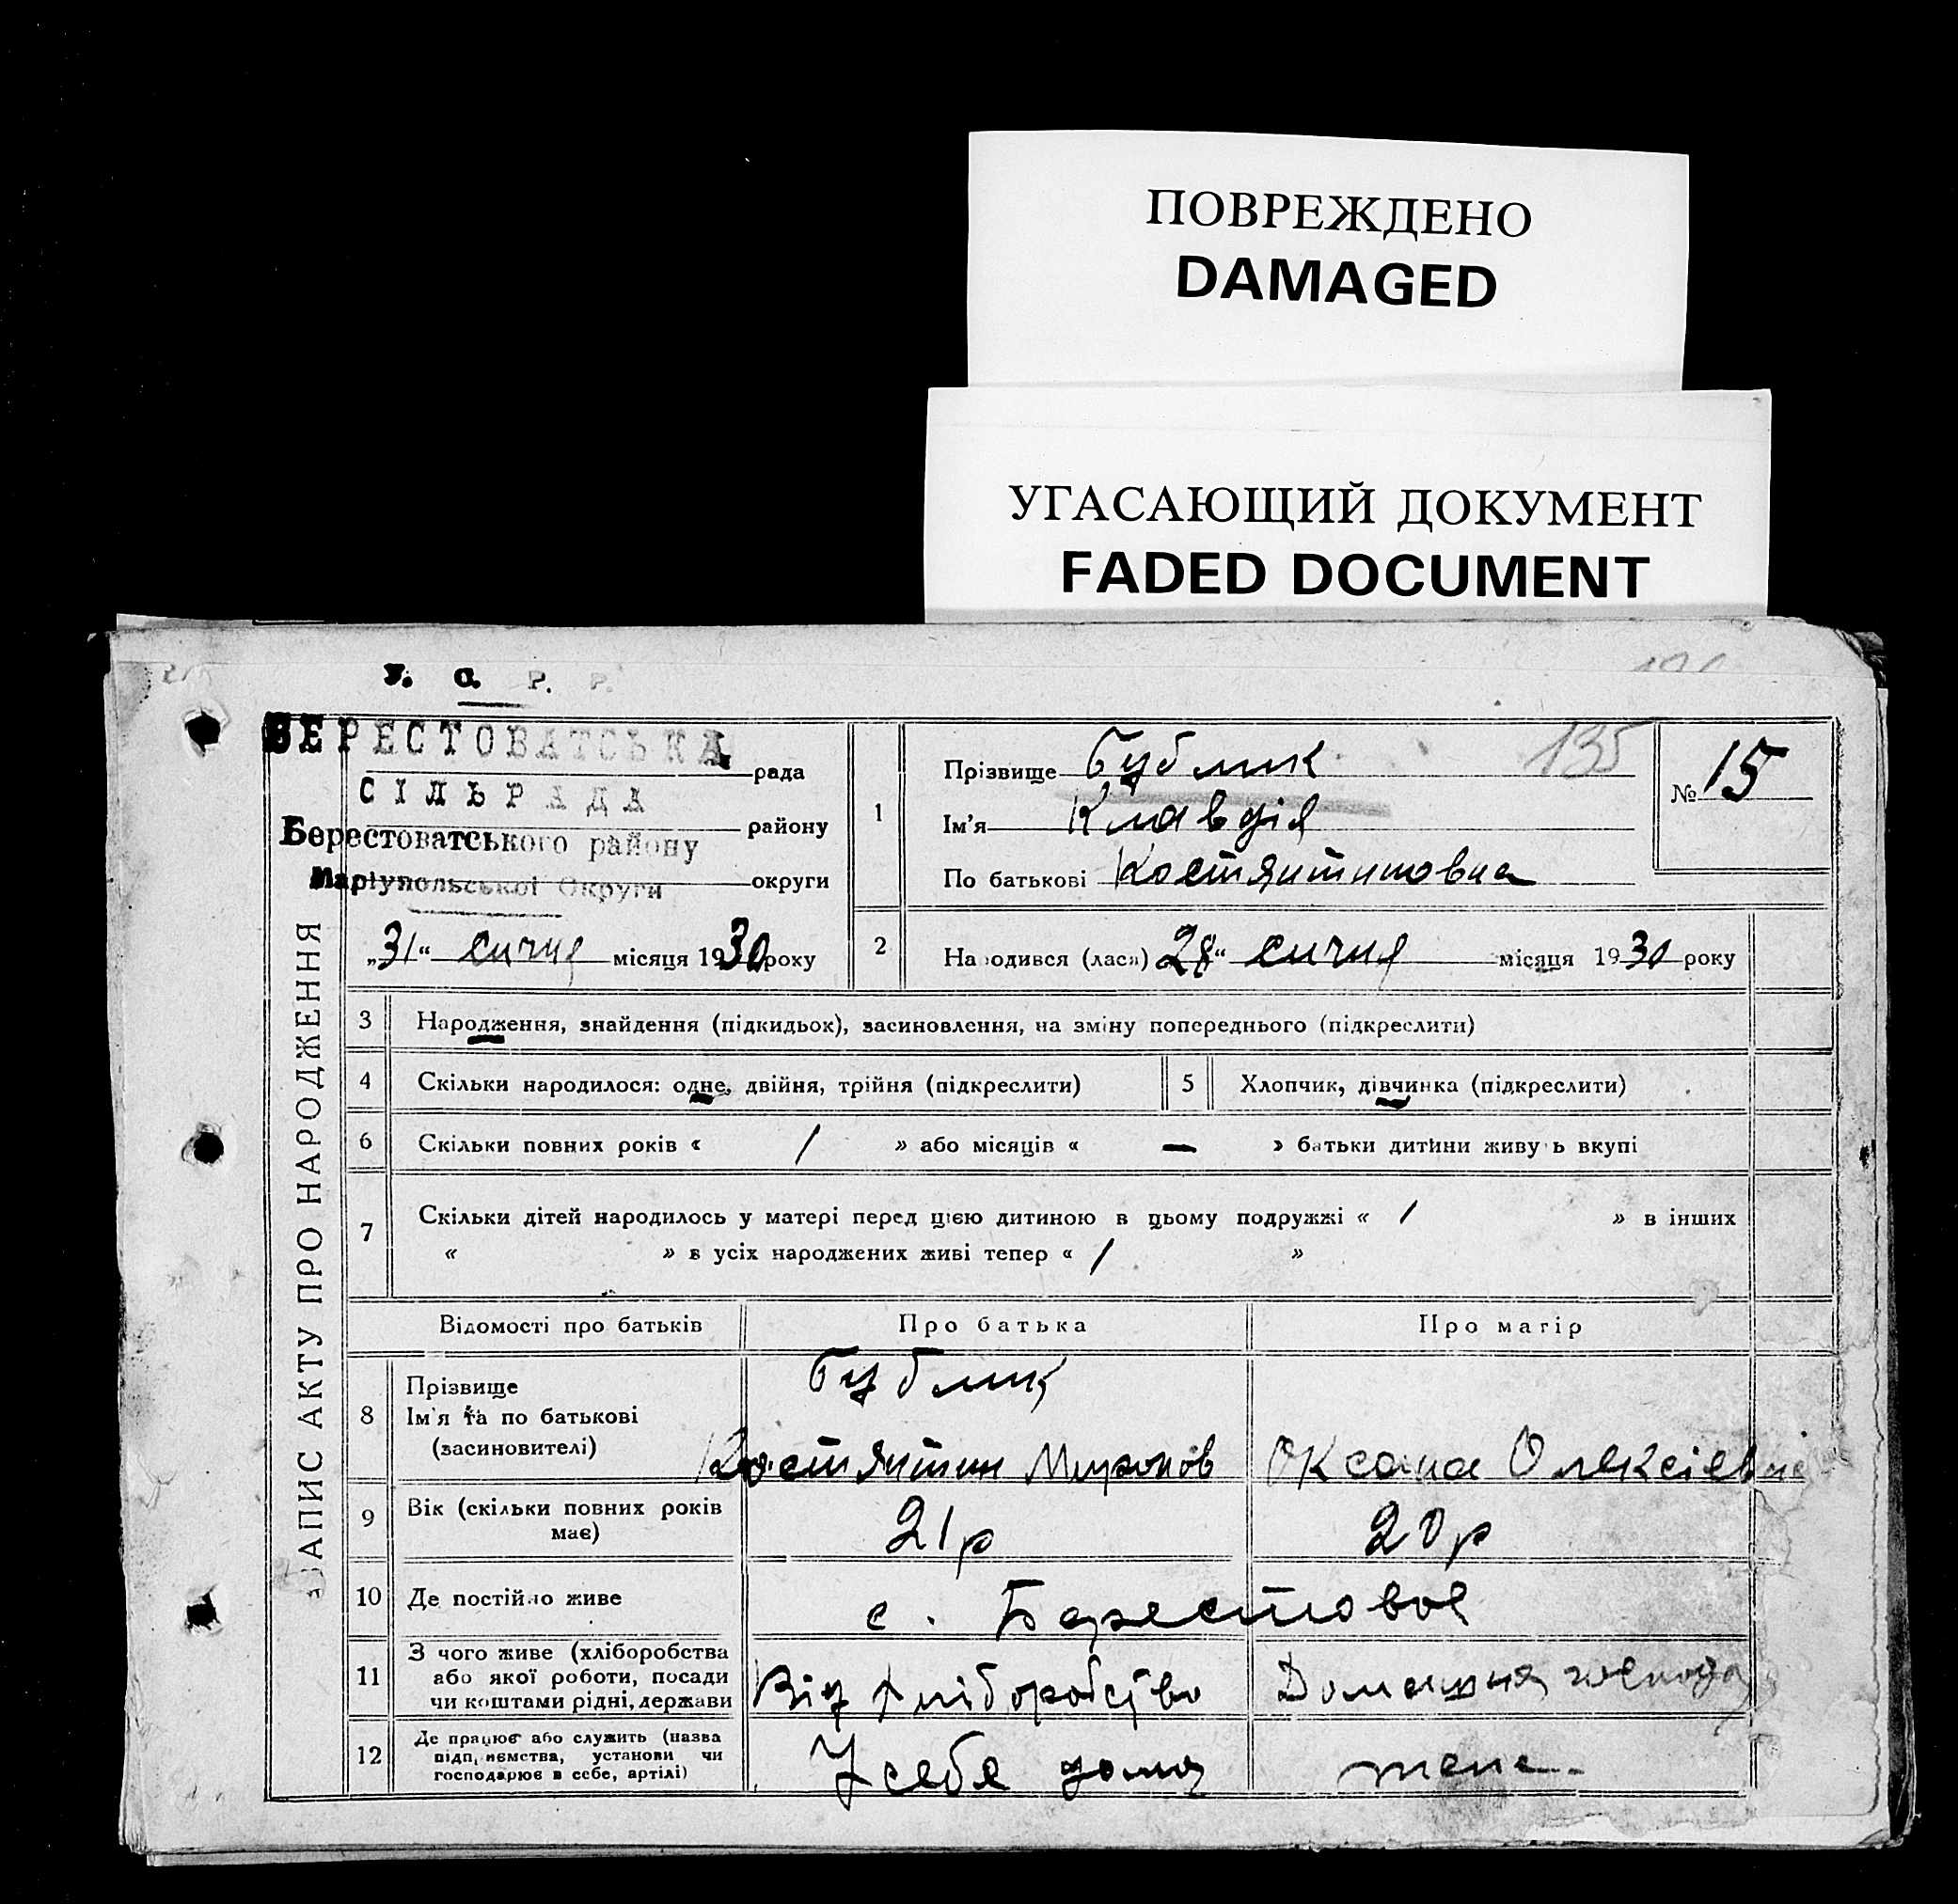 ПОВРЕЖДЕНО
DAMAGED
УГАСАЮЩИЙ ДОКУМЕНТ
FADED DOCUMENT
У. С. Р. Р.
БЕРЕСТОВАТСЬКА рада
СІЛЬРАДА
району
Берестоватського району
Маріупольської Округи округи
„31“ січня місяця 1930 року
ЗАПИС АКТУ ПРО НАРОДЖЕННЯ
135
№ 15
1 Прізвище Бублик
Ім'я Клавдія
По батькові Костянтиновна
2 Народився (лась) 28“ січня місяця 1930 року
3 Народження, знайдення (підкидьок), засиновлення, на зміну попереднього (підкреслити)
4 Скільки народилося: одне, двійня, трійня (підкреслити) 5 Хлопчик, дівчинка (підкреслити)
6 Скільки повних років « 1 » або місяців « — » батьки дитини живуть вкупі
7 Скільки дітей народилось у матері перед цією дитиною в цьому подружжі « 1 » в інших
« » в усіх народжених живі тепер « 1 »
Відомості про батьків Про батька Про матір
8 Прізвище Ім'я та по батькові (засиновителі) Бублик
Костянтин Миронов Оксана Олексіевна
9 Вік (скільки повних років має) 21р 20р
10 Де постійно живе с. Берестовое
11 З чого живе (хліборобства або якої роботи, посади чи коштами рідні, держави Від хліборобство Домашня
12 Де працює або служить (назва підприємства, установи чи господарює в себе, артілі) У себе дома теж